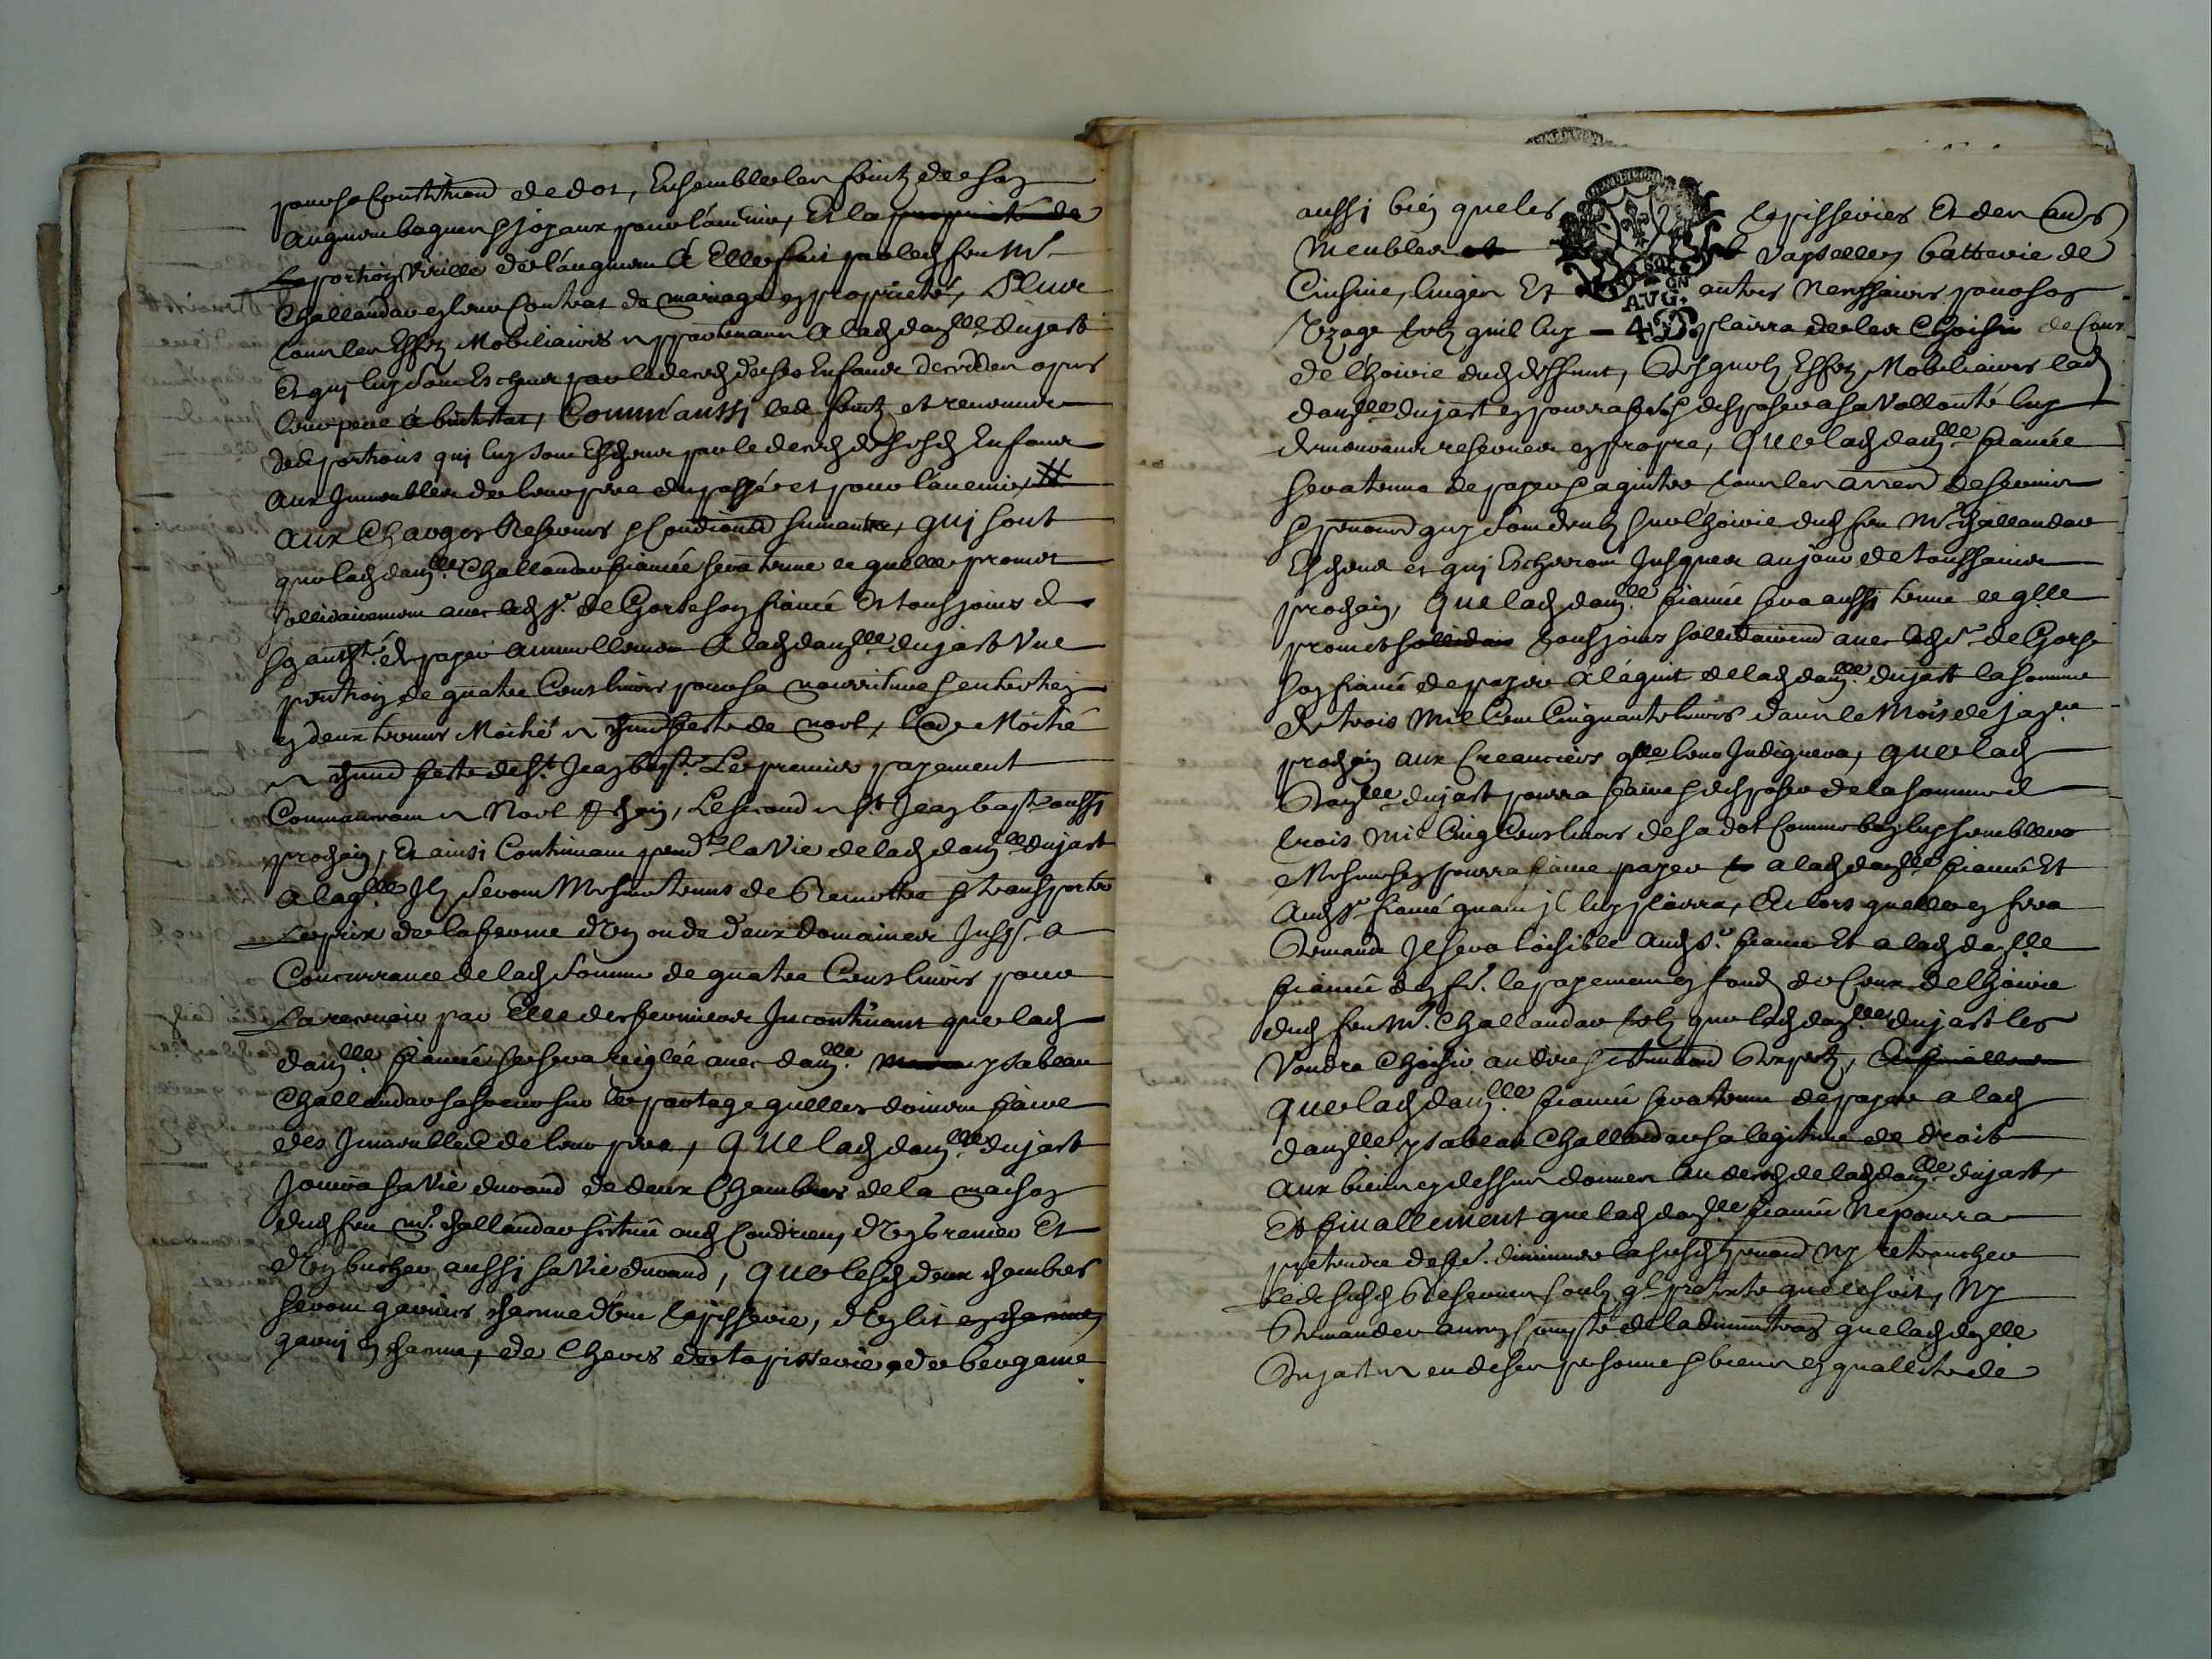 pour sa constitution de dot, Ensemble les fruitz de son
augment bagues & joyaux pour l'advenir, Et la propriété de
La portion virille de l'augment à Elle fait par led feu Mr
Challandar en leur contrat de mariage en propriété, Plus
tous les Effetz Mobiliaires appartenants a lad dauzlle dujast
Et qui luy sont Escheus par le decedz de ses Enfants decedez apres
leur pere ab intestat, Comm'aussi les fruitz et revenus
des portions qui luy sont Escheus par le decedz de sesd Enfants
aux Immeubles de leur pere du passé et pour l'avenir #
aux Charges Reserves & Conditions suivantes, qui sont
que lad dauzlle Challandar fiancée sera tenue ce quelle promet
sollidairement avec led sr. de Gorse son fiancé Et tousjours de
son authté de payer annuellement A lad dauzlle dujast Une
pention de quatre Cens livres pour sa nourriture & entretien
en deux termes Moitié a chune feste de noel, l'autre Moitié
a chune feste de st Jean bapte Le premier payement
Commancant a Noel prochain, Le second a st Jean bapte aussi
prochain, Et ainsi Continuant pendt la Vie de lad dauzlle dujast
A laqlle Ilz seront Mesmes tenus de Remettre & transporter
Le prix de la ferme d'Un ou de deux domaines Jusqs a
Concurrance de lad somme de quatre Cens livres pour
La recevoir par Elle des fermiers Incontinant que lad
dauzlle fiancée se sera reiglée avec dauzlle ysabeau
Challandar sa soeur sur le partage quelles doivent faire
des Immeubles de leur pere, QUe lad dauzlle dujast
Jouira sa Vie durand de deux Chambres de la maison
dud feu Mr. challandar sictuée aud Condrieu, d'Un grenier Et
d'Un bucher aussi sa Vie durand, QUe lesd deux chambres
seront garnies chacune d'une tapisserie, d'Un lit en chacune
garny en chacune, de Chezes de tapisserie, de bergame
aussi bien que les tapisseries Et des autres
Meubles et Vaisselles batterie de
Cuisine, linges Et autres Necessaires pour son
Uzage telz quil luy plairra de les Choisir de Ceux
de l'hoirie dud deffunt, Desquelz Effetz Mobiliaires lad
dauzlle dujast en pourra disposer a sa Vollonté luy
demeurants reservees en propre, QUe lad dauzlle fiancée
sera tenue de payer & aquitter tous les arrerages
& pentions quy sont deubz sur l'hoirie dud feu Mr. challandar
Escheus et qui Escherront Jusques au jour de toussainct
prochain, QUe lad dauzlle fiancée sera aussi tenue ce qlle
promet sollidair tousjours sollidairement avec led sr de Gorse
son fiancé de payer A l'aquit de lad dauzlle dujast la somme
de trois Mil Cent Cinquante livres dans le Mois de janer
prochain aux Creanciers qlle leur Indiquera, QUe lad
Dauzlle dujast pourra faire & disposer de la somme de
trois mil Cinq Cens livres de sa dot Comme bon luy semblera
Mesmes en pourra faire payer a lad dauzlle fiancée Et
Aud sr fiancé quant Il luy plairra, Et lors quelle en fera
Demande Il sera loisible Aud sr. fiancé Et a lad dauzlle
fiancée d'en fe. le payement en fondz de Ceux de l'hoirie
dud feu Mr. Challandar telz que lad dauzlle dujast les
Voudra Choisir au dire & estimation d'experts, Et finallement
QUe lad dauzlle fiancée sera tenue de payer a lad
dauzlle ysabeau Challandar sa legitime de droit
Aux biens cy dessus donnez au decedz de lad dauzlle dujast,
Et finallement que lad dauzlle fiancée Ne pourra
pretendre de fe. diminuer la susd pention Ny retrancher
Lesd susd Reserves soubz ql pretexte que ce soit, Ny
Demander aucun Compte de l'administraon que lad dauzlle
Dujast a eu de ses personne & biens en quallité de